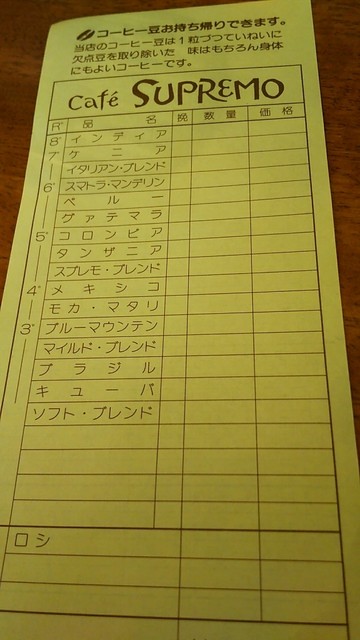 コーヒー豆お持ち帰りできます。
当店のコーヒー豆は1粒づつていねいに
欠点豆を取り除いた 味はもちろん身体
にもよいコーヒーです。
Café SUPREMO
R° 品名 挽 数量 価格
8° インディア
7° ケニア
イタリアン・ブレンド
6° スマトラ・マンデリン
ペルー
グァテマラ
5° コロンビア
タンザニア
スプレモ・ブレンド
4° メキシコ
モカ・マタリ
3° ブルーマウンテン
マイルド・ブレンド
ブラジル
キューバ
ソフト・ブレンド
ロシ